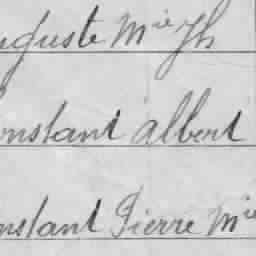 uguste Mie Jh
onstant Albert
nstant Pierre Mie